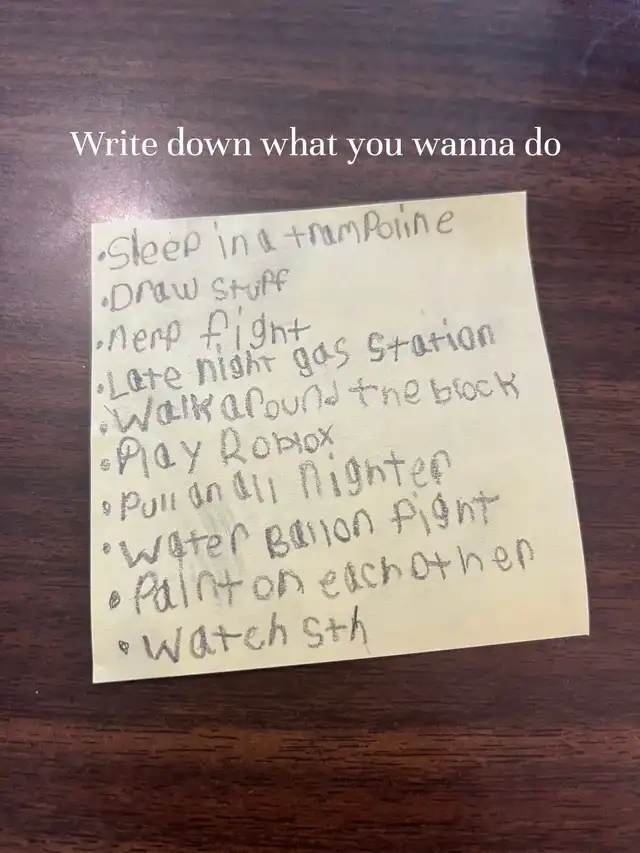 Write down what you wanna do
•Sleep in a trampoline
•Draw stuff
•nerf fight
•Late night gas station
•Walk around the block
•Play Roblox
•Pull an all nighter
•Water Ballon fight
•Paint on each other
•Watch sth